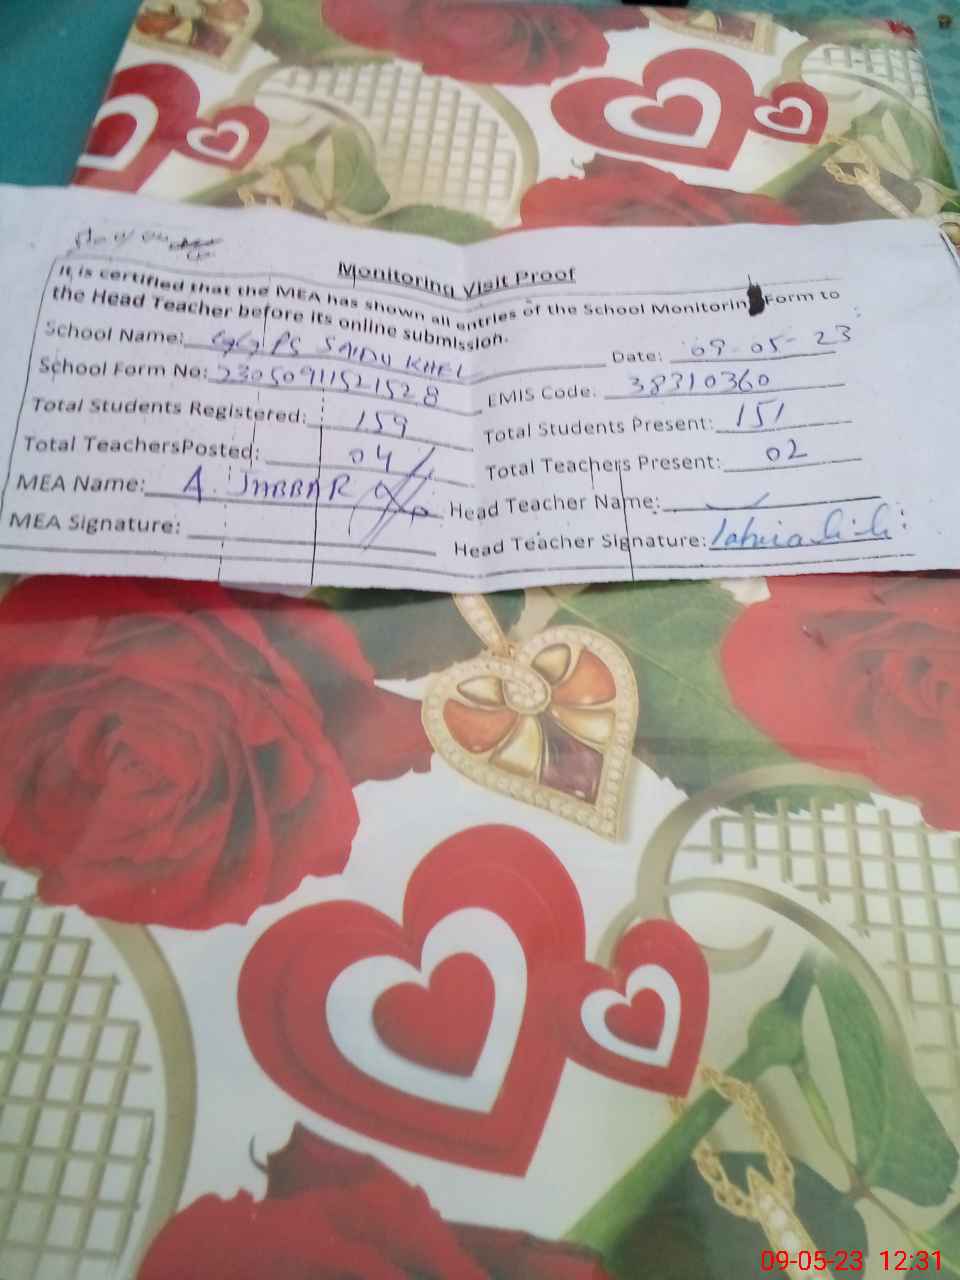 Monitoring Visit Proof
It is certified that the MEA has shown all entries of the School Monitoring Form to
the Head Teacher before its online submission.
School Name: GGPS SAIDU KHEL Date: 09-05-23
School Form No: 23050911521528 EMIS Code: 38310360
Total Students Registered: 159 Total Students Present: 151
Total TeachersPosted: 04 Total Teachers Present: 02
MEA Name: A. JABBAR Head Teacher Name:
MEA Signature: Head Teacher Signature:
09-05-23 12:31